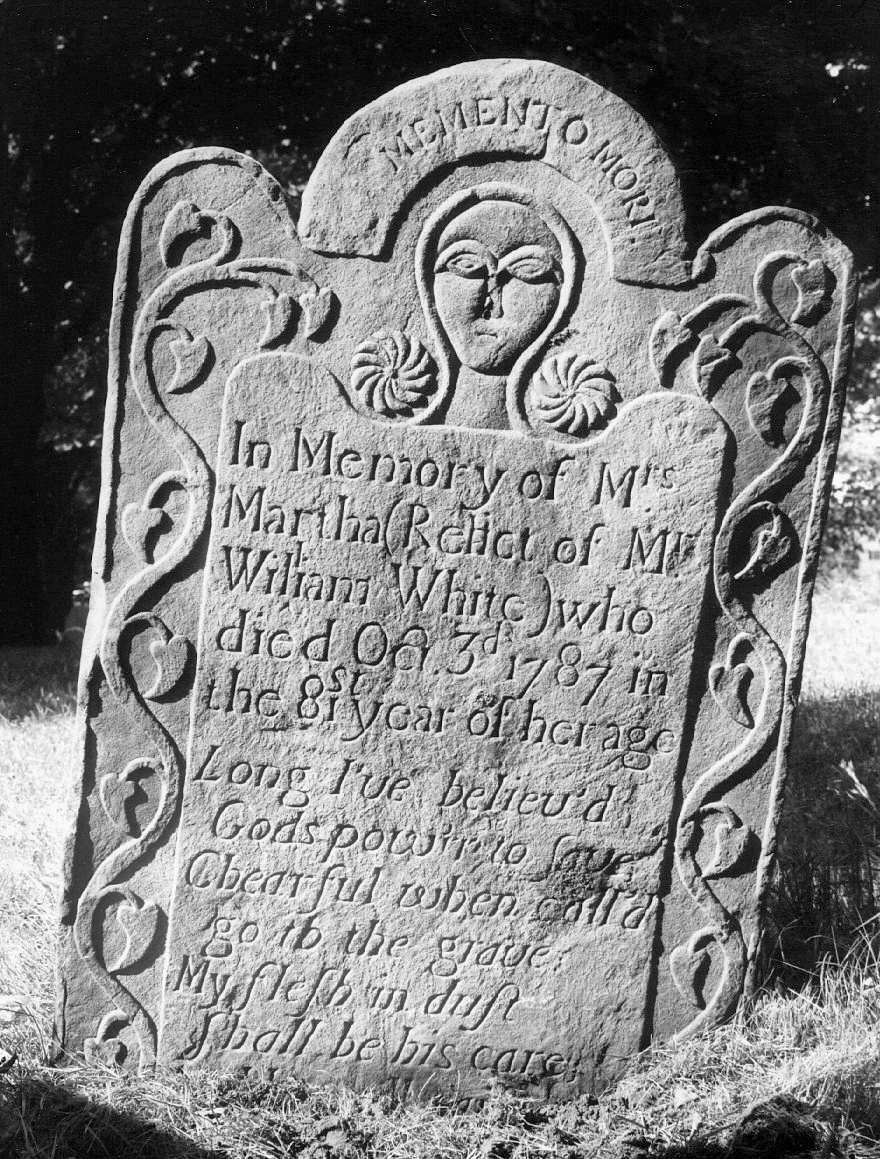 MEMENTO MORI.
In Memory of Mrs
Martha (Relict of Mr
William White) who
died Oct. 3d 1787 in
the 81st year of her age
Long I've believ'd
Gods pow'r to ſave
Chearful when call'd
go to the grave
My fleſh in duſt
ſhall be his care